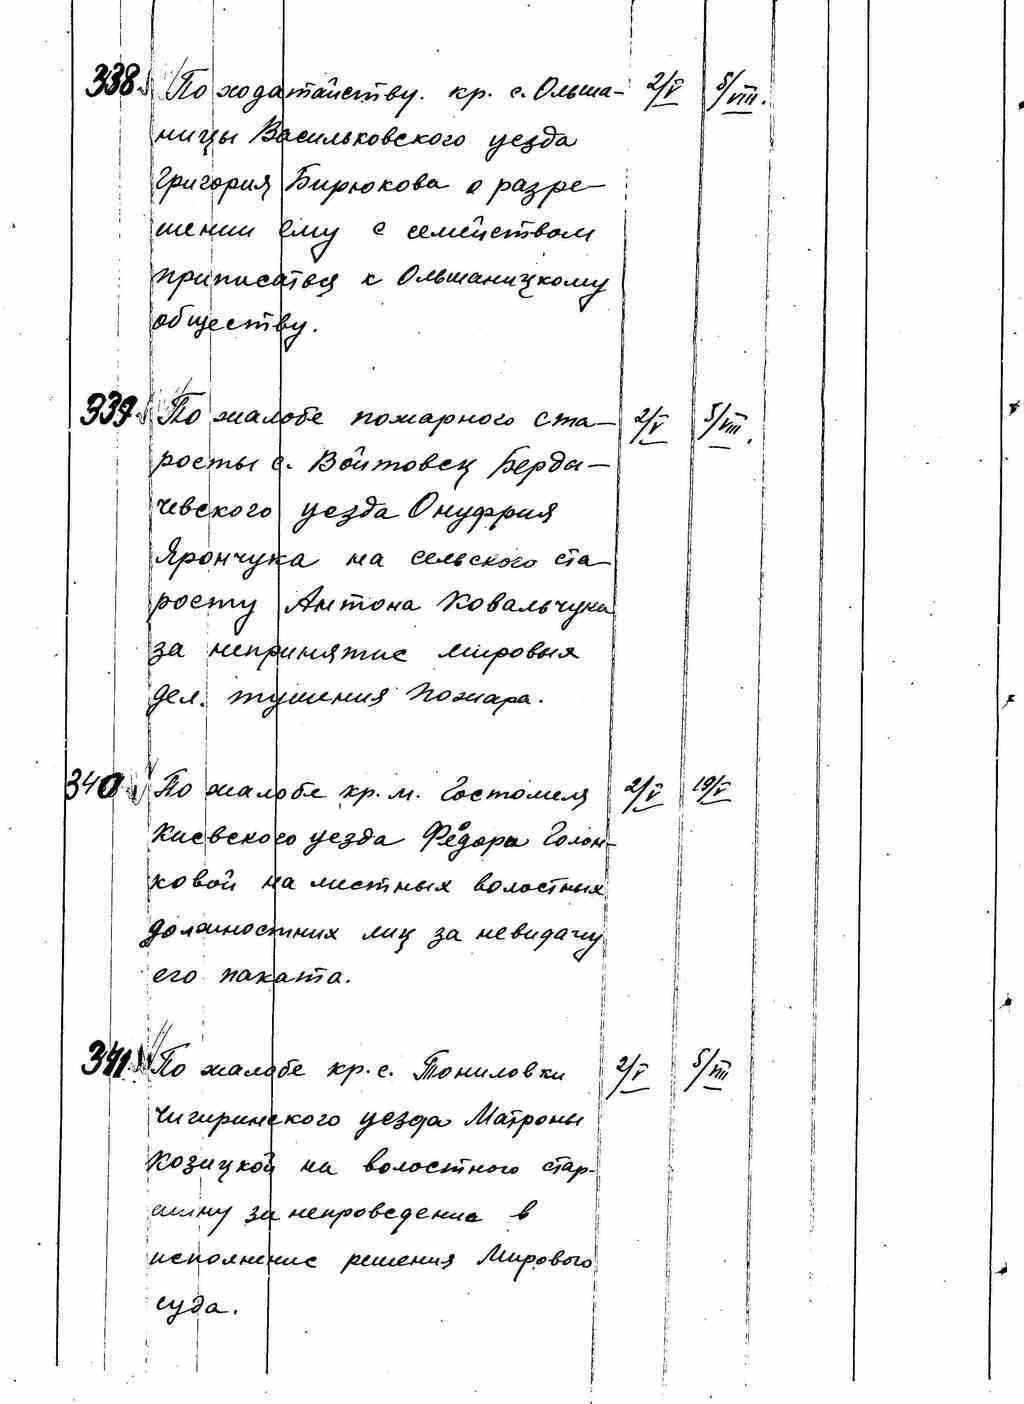 338. По ходатайству. кр. с. Ольша- 2/V 5/VIII.
ницы Васильковского уезда
Григория Бирюкова о разре-
шении ему с семейством
приписаться к Ольшаницкому
обществу.
339. По жалобе пожарного ста- 2/V 5/VIII.
росты с. Войтовец Берди-
чевского уезда Онуфрия
Ярончука на сельского ста-
росту Антона Ковальчука
за непринятие мировых
дел. тушения пожара.
340. По жалобе кр. м. Гостомеля 2/V 19/V
Киевского уезда Фёдора Голон-
ковой на местных волостных
должностных лиц за невидачу
его паката.
341. По жалобе кр. с. Тониловки 2/V 5/VIII
Чигиринского уезда Матроны
Козицкой на волостного стар-
шину за непроведение в
исполнение решения Мирового
суда.